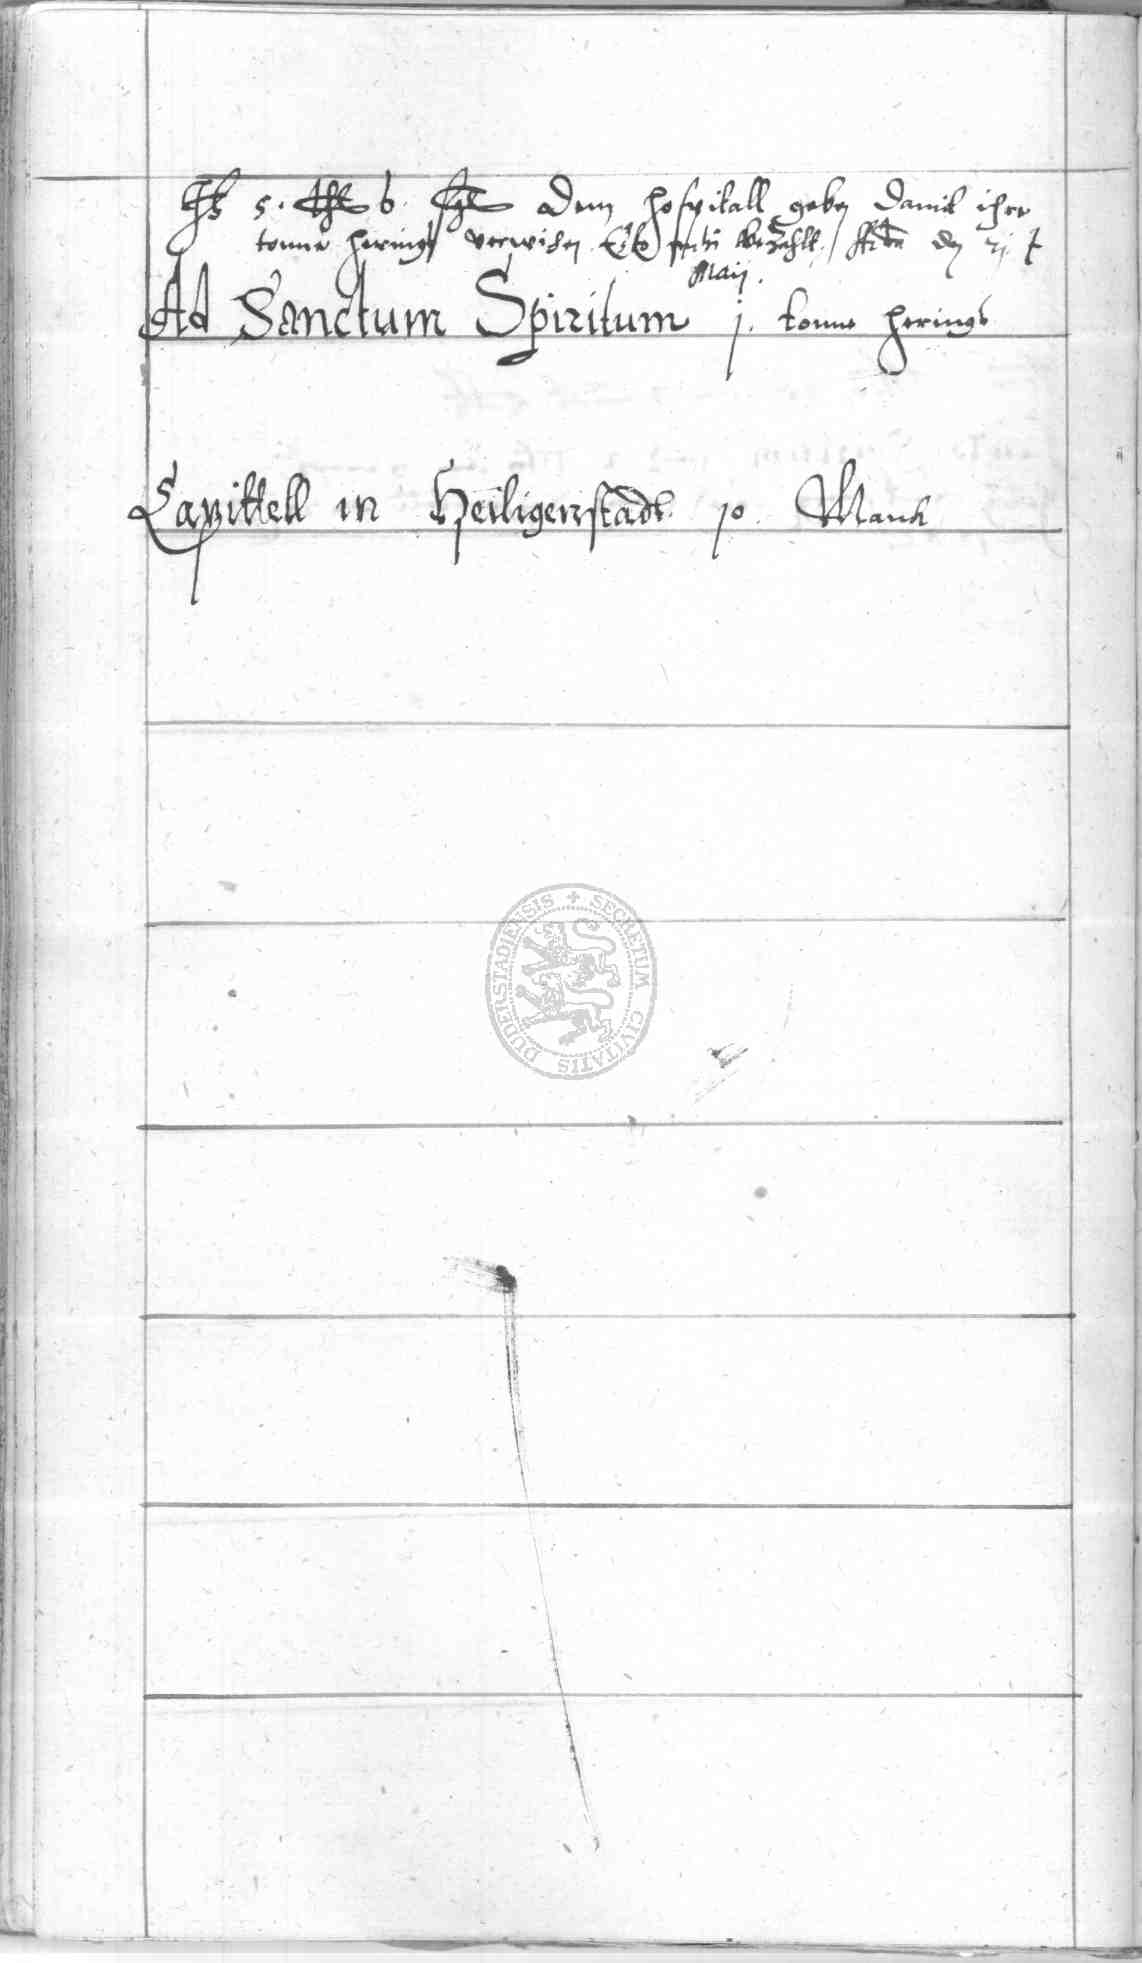 5. thl 6. sgl dem hospitall geben damit ihre
tonne herings bezahlt den
Maij.
Ad Sanctum Spiritum j. tonne herings
Capittell in Heiligenstadt 10. Marck
DUDERSTADIENSIS + SECRETUM CIVITATIS